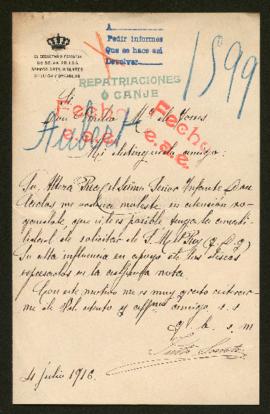 EL SECRETARIO PARTICULAR
DE SS. AA. RR. LOS
SERMOS. SRES. INFANTES
Dª LUISA Y DN CARLOS
A
Pedir informes
Que se hace así
Devolver
1599
REPATRIACIONES
Ó CANJE
Sr.
Don Emilio Mª de Torres
Fecha
e.a.e.
Fecha
e.a.e.
Mi distinguido amigo:
Su Alteza Real el Señor Infante Don
Carlos me ordena moleste su atención ro-
gándole, que si es posible tenga la amabi-
lidad de solicitar de S. M. el Rey (q. D. g.)
Su alta influencia en apoyo de los deseos
expresados en la adjunta nota.
Con este motivo me es muy grato reiterar-
me de Vd. atento y affmo amigo s. s.
q. b. s. m.
4 Julio 1916.